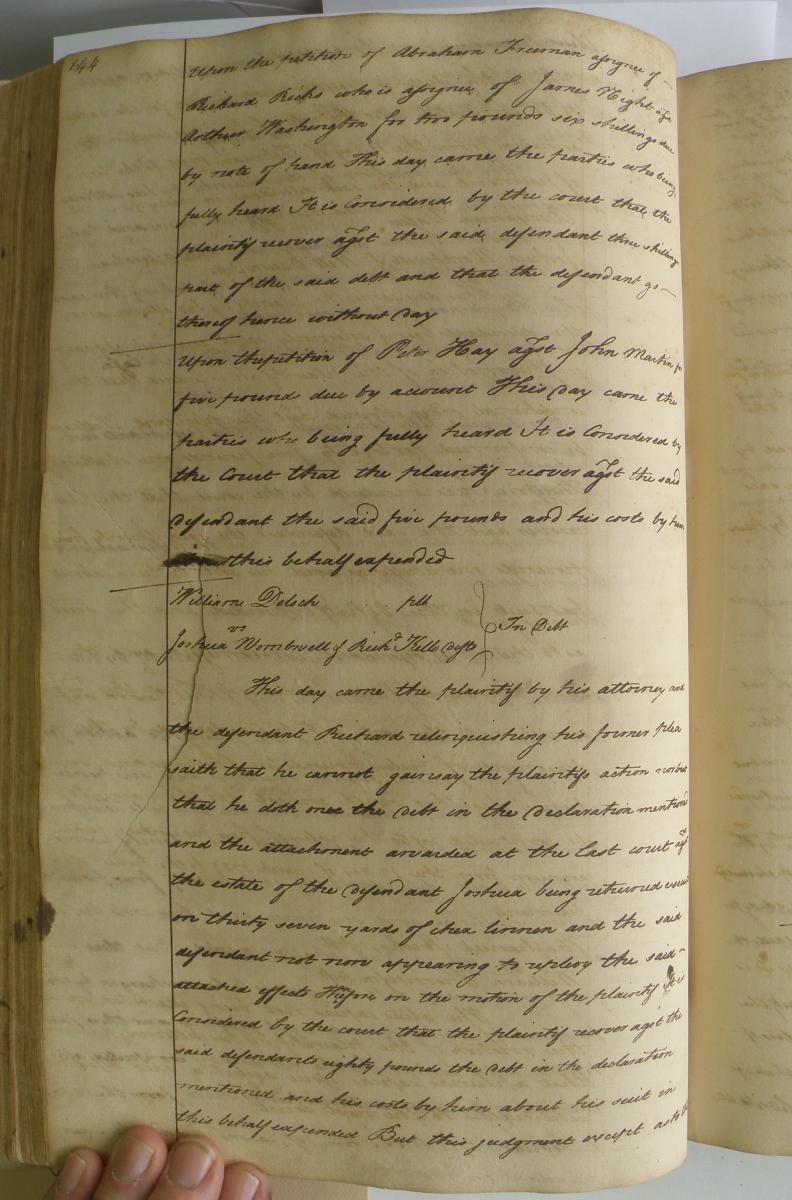 144
Upon the petition of Abraham Freeman assignee of
Richard Ricks who is assignee of James Night agst
Arthur Washington for two pounds six shillings due
by note of hand This day came the parties who being
fully heard It is Considered by the court that the
plaintif recover agst the said defendant three shilling
part of the said debt and that the defendant go
thereof hence without day
Upon the petition of Peter Hay agst John Martin for
five pounds due by account This day came the
parties who being fully heard It is Considered by
the Court that the plaintif recover agst the said
defendant the said five pounds and his costs by him
this behalf expended
William Deloch plt
vs
Joshua Wombwell & Richd Kello defts
In Debt
This day came the plaintif by his attorney and
the defendant Richard relinquishing his former plea
saith that he cannot gainsay the plaintifs action nor but
that he doth owe the debt in the declaration mentioned
and the attachment awarded at the last court agst
the estate of the defendant Joshua being returned
on thirty seven yards of chex linnen and the said
defendant not now appearing to replevy the said
attached effects Therefore on the motion of the plaintif It is
Considered by the court that the plaintif recover agst the
said defendants eighty pounds the debt in the declaration
mentioned and his costs by him about his suit in
this behalf expended But this judgment except as to the